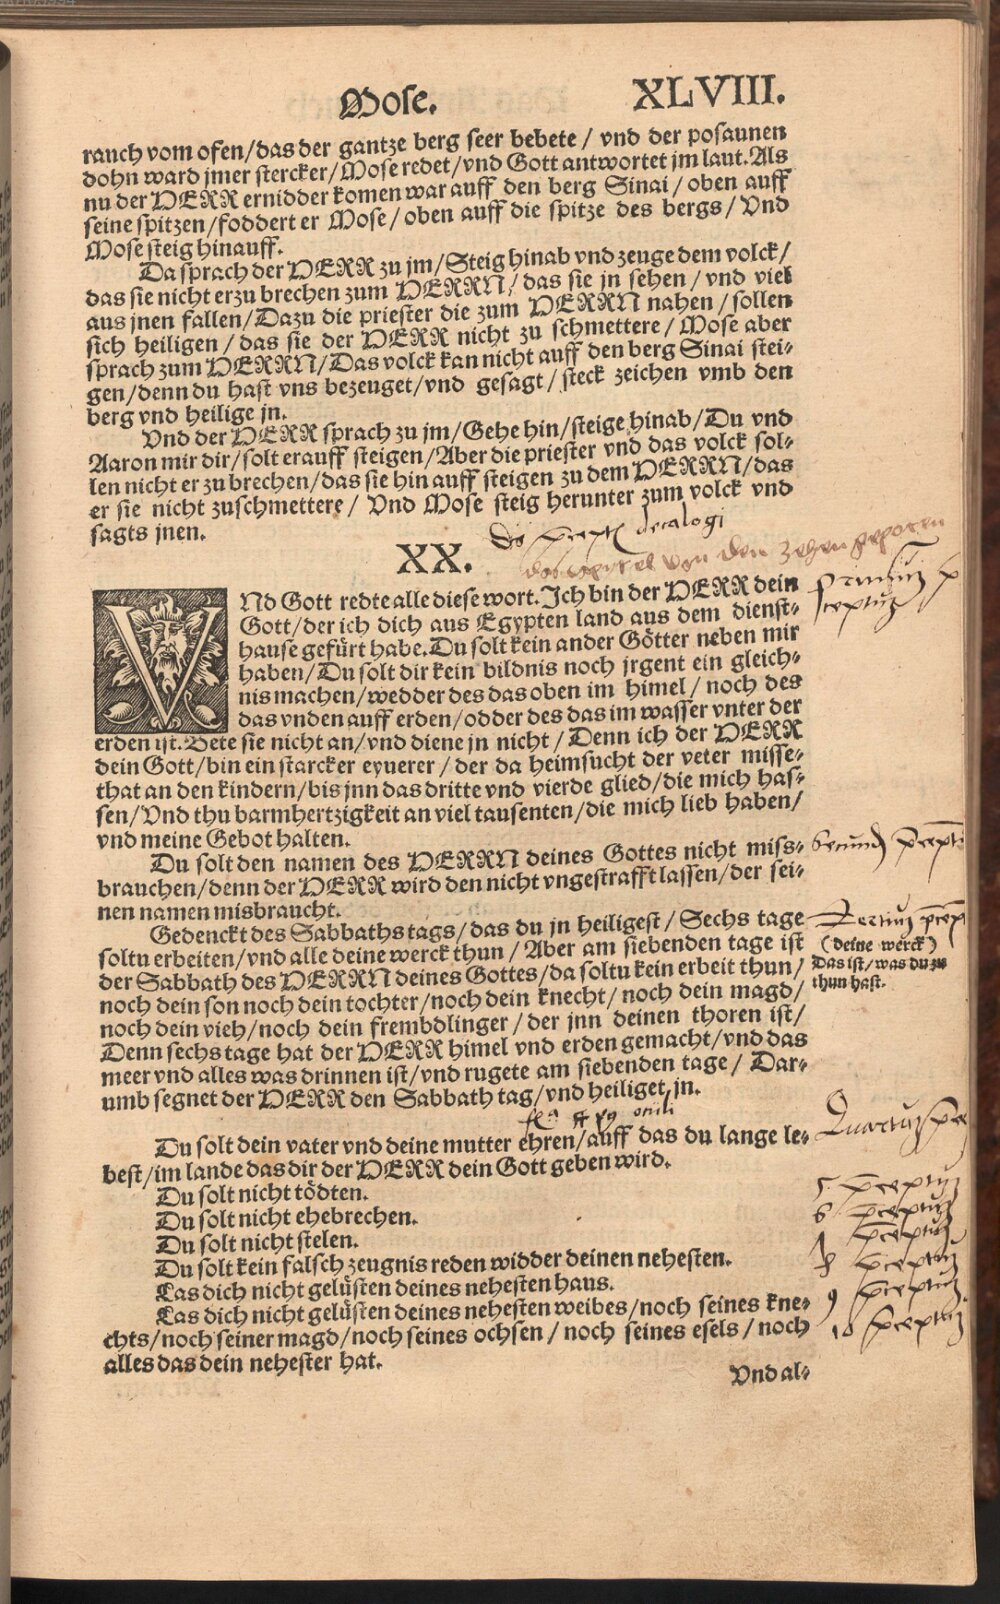 Mose. XLVIII.
rauch vom ofen/das der gantze berg seer bebete/ vnd der posaunen
dohn ward jmer stercker/Mose redet/vnd Gott antwortet jm laut.Als
nu der HERR ernidder komen war auff den berg Sinai/ oben auff
seine spitzen/foddert er Mose/ oben auff die spitze des bergs/ Vnd
Mose steig hinauff.
Da sprach der HERR zu jm/Steig hinab vnd zeuge dem volck/
das sie nicht erzu brechen zum HERRN/ das sie jn sehen/ vnd viel
aus jnen fallen/Dazu die priester die zum HERRN nahen/ sollen
sich heiligen/ das sie der HERR nicht zu schmettere/ Mose aber
sprach zum HERRN/Das volck kan nicht auff den berg Sinai stei-
gen/denn du hast vns bezeuget/vnd gesagt/ steck zeichen vmb den
berg vnd heilige jn.
Vnd der HERR sprach zu jm/Gehe hin/steige hinab/Du vnd
Aaron mir dir/solt erauff steigen/Aber die priester vnd das volck sol-
len nicht er zu brechen/das sie hin auff steigen zu dem HERRN/das
er sie nicht zuschmettere/ Vnd Mose steig herunter zum volck vnd
sagts jnen.
decalogi
von den zehen geporen
XX.
VNd Gott redte alle diese wort.Ich bin der HERR dein
Gott/der ich dich aus Egypten land aus dem dienst-
hause gefürt habe.Du solt kein ander Götter neben mir
haben/Du solt dir kein bildnis noch jrgent ein gleich-
nis machen/wedder des das oben im himel/ noch des
das vnden auff erden/odder des das im wasser vnter der
erden ist.Bete sie nicht an/vnd diene jn nicht/ Denn ich der HERR
dein Gott/bin ein starcker eyuerer/ der da heimsucht der veter misse-
that an den kindern/bis jnn das dritte vnd vierde glied/die mich has-
sen/Vnd thu barmhertzigkeit an viel tausenten/die mich lieb haben/
vnd meine Gebot halten.
Du solt den namen des HERRN deines Gottes nicht miss-
brauchen/denn der HERR wird den nicht vngestrafft lassen/der sei-
nen namen misbraucht.
Gedenckt des Sabbaths tags/das du jn heiligest/ Sechs tage
soltu erbeiten/vnd alle deine werck thun/ Aber am siebenden tage ist
(deine werck)
Das ist/was du zu
thun hast.
der Sabbath des HERRN deines Gottes/da soltu kein erbeit thun/
noch dein son noch dein tochter/noch dein knecht/ noch dein magd/
noch dein vieh/noch dein frembdlinger/ der jnn deinen thoren ist/
Denn sechs tage hat der HERR himel vnd erden gemacht/vnd das
meer vnd alles was drinnen ist/vnd rugete am siebenden tage/ Dar-
umb segnet der HERR den Sabbath tag/vnd heiliget jn.
Du solt dein vater vnd deine mutter ehren/auff das du lange le-
best/im lande das dir der HERR dein Gott geben wird.
Du solt nicht tödten.
Du solt nicht ehebrechen.
Du solt nicht stelen.
Du solt kein falsch zeugnis reden widder deinen nehesten.
Las dich nicht gelüsten deines nehesten haus.
Las dich nicht gelüsten deines nehesten weibes/noch seines kne-
chts/noch seiner magd/noch seines ochsen/ noch seines esels/ noch
alles das dein nehester hat.
Vnd al-